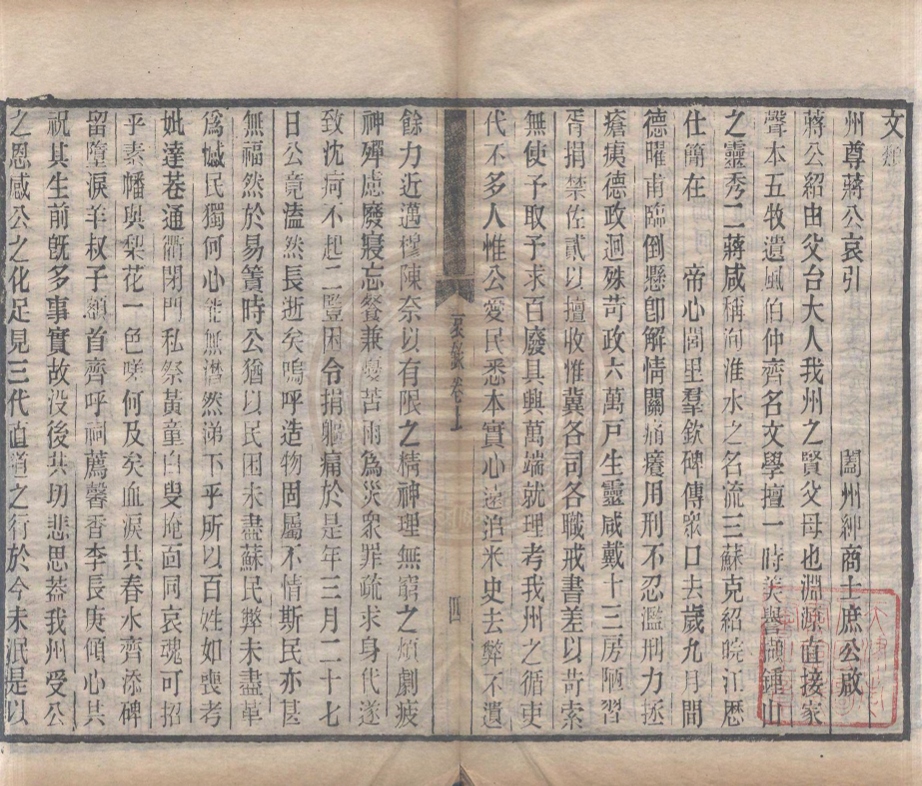 文類
州尊蔣公哀引 闔州紳商士庶公啟
蔣公紹由父台大人我州之賢父母也淵源直接家
聲本五牧遺風伯仲齊名文學擅一時美譽頴鍾山
之靈秀二蔣咸稱洵淮水之名流三蘇克紹皖江歷
仕簡在 帝心閭里羣欽碑傳眾口去歲九月間
德曜甫臨倒懸卽解情關痛癢用刑不忍濫刑力拯
瘡痍德政迥殊苛政六萬戸生靈咸戴十三房陋習
胥捐禁佐貳以擅收惟冀各司各職戒書差以苛索
無使予取予求百廢具興萬端就理考我州之循吏
代不多人惟公愛民悉本實心遠追米史去弊不遺
哀錄 卷上 四
餘力近邁穆陳奈以有限之精神理無窮之煩劇疲
神殫慮廢寢忘餐兼憂苦雨為災衆罪疏求身代遂
致沈疴不起二豎困令捐軀痛於是年三月二十七
日公竟溘然長逝矣嗚呼造物固屬不情斯民亦甚
無福然於易簀時公猶以民困未盡蘇民弊未盡革
為憾民獨何心能無潸然涕下乎所以百姓如喪考
妣達巷通衢閉門私祭黃童白叟掩面同哀魂可招
乎素幡與梨花一色嗟何及矣血淚共春水齊添碑
留墮淚羊叔子額首齊呼祠薦馨香李長庚傾心共
祝其生前旣多事實故没後共切悲思葢我州受公
之恩感公之化足見三代直道之行於今未泯是以